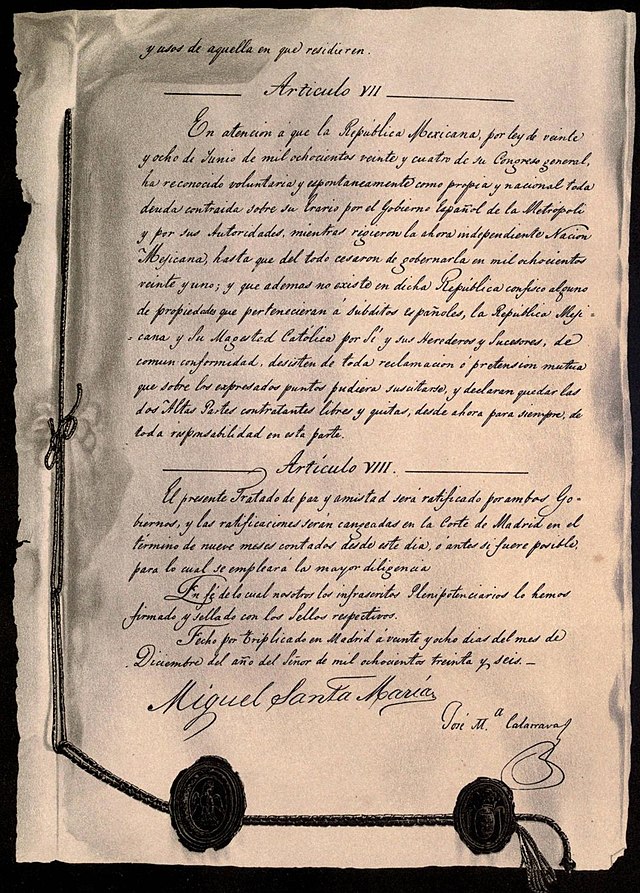 y usos de aquella en que residieren.
Articulo VII
En atencion á que la República Mexicana, por ley de veinte
y ocho de Junio de mil ochocientos veinte y cuatro de su Congreso general,
ha reconocido voluntaria y espontaneamente como propia y nacional toda
deuda contraida sobre su Erario por el Gobierno Español de la Metrópoli
y por sus Autoridades, mientras rigieron la ahora independiente Nacion
Mejicana, hasta que del todo cesaron de gobernarla en mil ochocientos
veinte y uno; y que ademas no existe en dicha República confisco alguno
de propiedades que pertenecieran á subditos españoles, la República Meji-
-cana y Su Magestad Católica por Sí y sus Herederos y Sucesores, de
comun conformidad, desisten de toda reclamacion ó pretension mutua
que sobre los expresados puntos pudiera suscitarse, y declaran quedar las
dos Altas Partes contratantes libres y quitas, desde ahora para siempre, de
toda responsabilidad en esta parte.
Artículo VIII.
El presente Tratado de paz y amistad será ratificado por ambos Go-
biernos, y las ratificaciones serán cangeadas en la Corte de Madrid en el
término de nueve meses contados desde este dia, ó antes si fuere posible,
para lo cual se empleara la mayor diligencia
En fé de lo cual nosotros los infrascritos Plenipotenciarios lo hemos
firmado y sellado con los Sellos respectivos.
Fecho por triplicado en Madrid á veinte y ocho dias del mes de
Diciembre del año del Señor de mil ochocientos treinta y seis.—
Miguel Santa María
José M.ª Calatrava